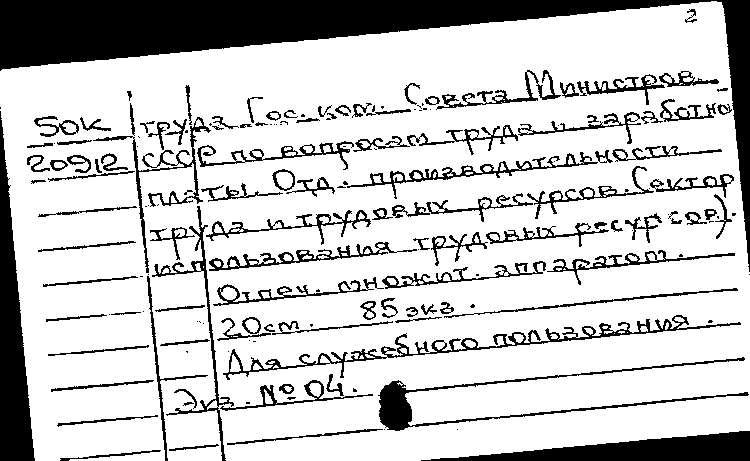 2
50К труда Гос. ком. Совета Министров
20912 СССР по вопросам труда и заработно-
платы. Отд. производительности
труда и трудовых ресурсов. (Сектор
использования трудовых ресурсов).
Отпеч. множит. аппаратом.
20см. 85 экз.
Для служебного пользования.
Экз. № 04.